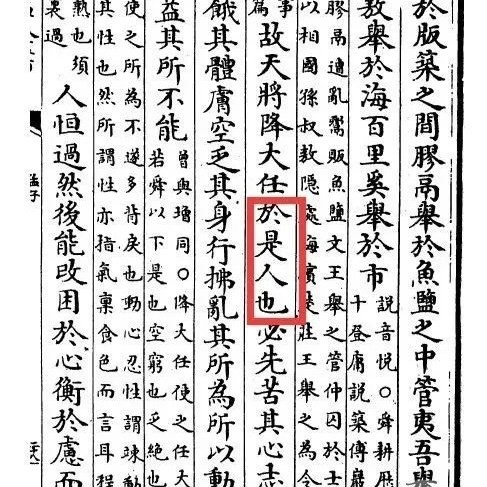 於版築之間膠鬲舉於魚鹽之中管夷吾舉
敖舉於海百里奚舉於市
說音悅○舜耕歷
十登庸說築傅巖
膠鬲遭亂鬻販魚鹽文王舉之管仲囚於士
以相國孫叔敖隱處海濱楚莊王舉之為令
事
為
故天將降大任於是人也必先苦其心志
餓其體膚空乏其身行拂亂其所為所以動
益其所不能
曾與增同○降大任使之任大
若舜以下是也空窮也乏絕也
使之所為不遂多背戾也動心忍性謂竦動
其性也然所謂性亦指氣稟食色而言耳程
熟也須
人恒過然後能改困於心衡於慮而
孟子